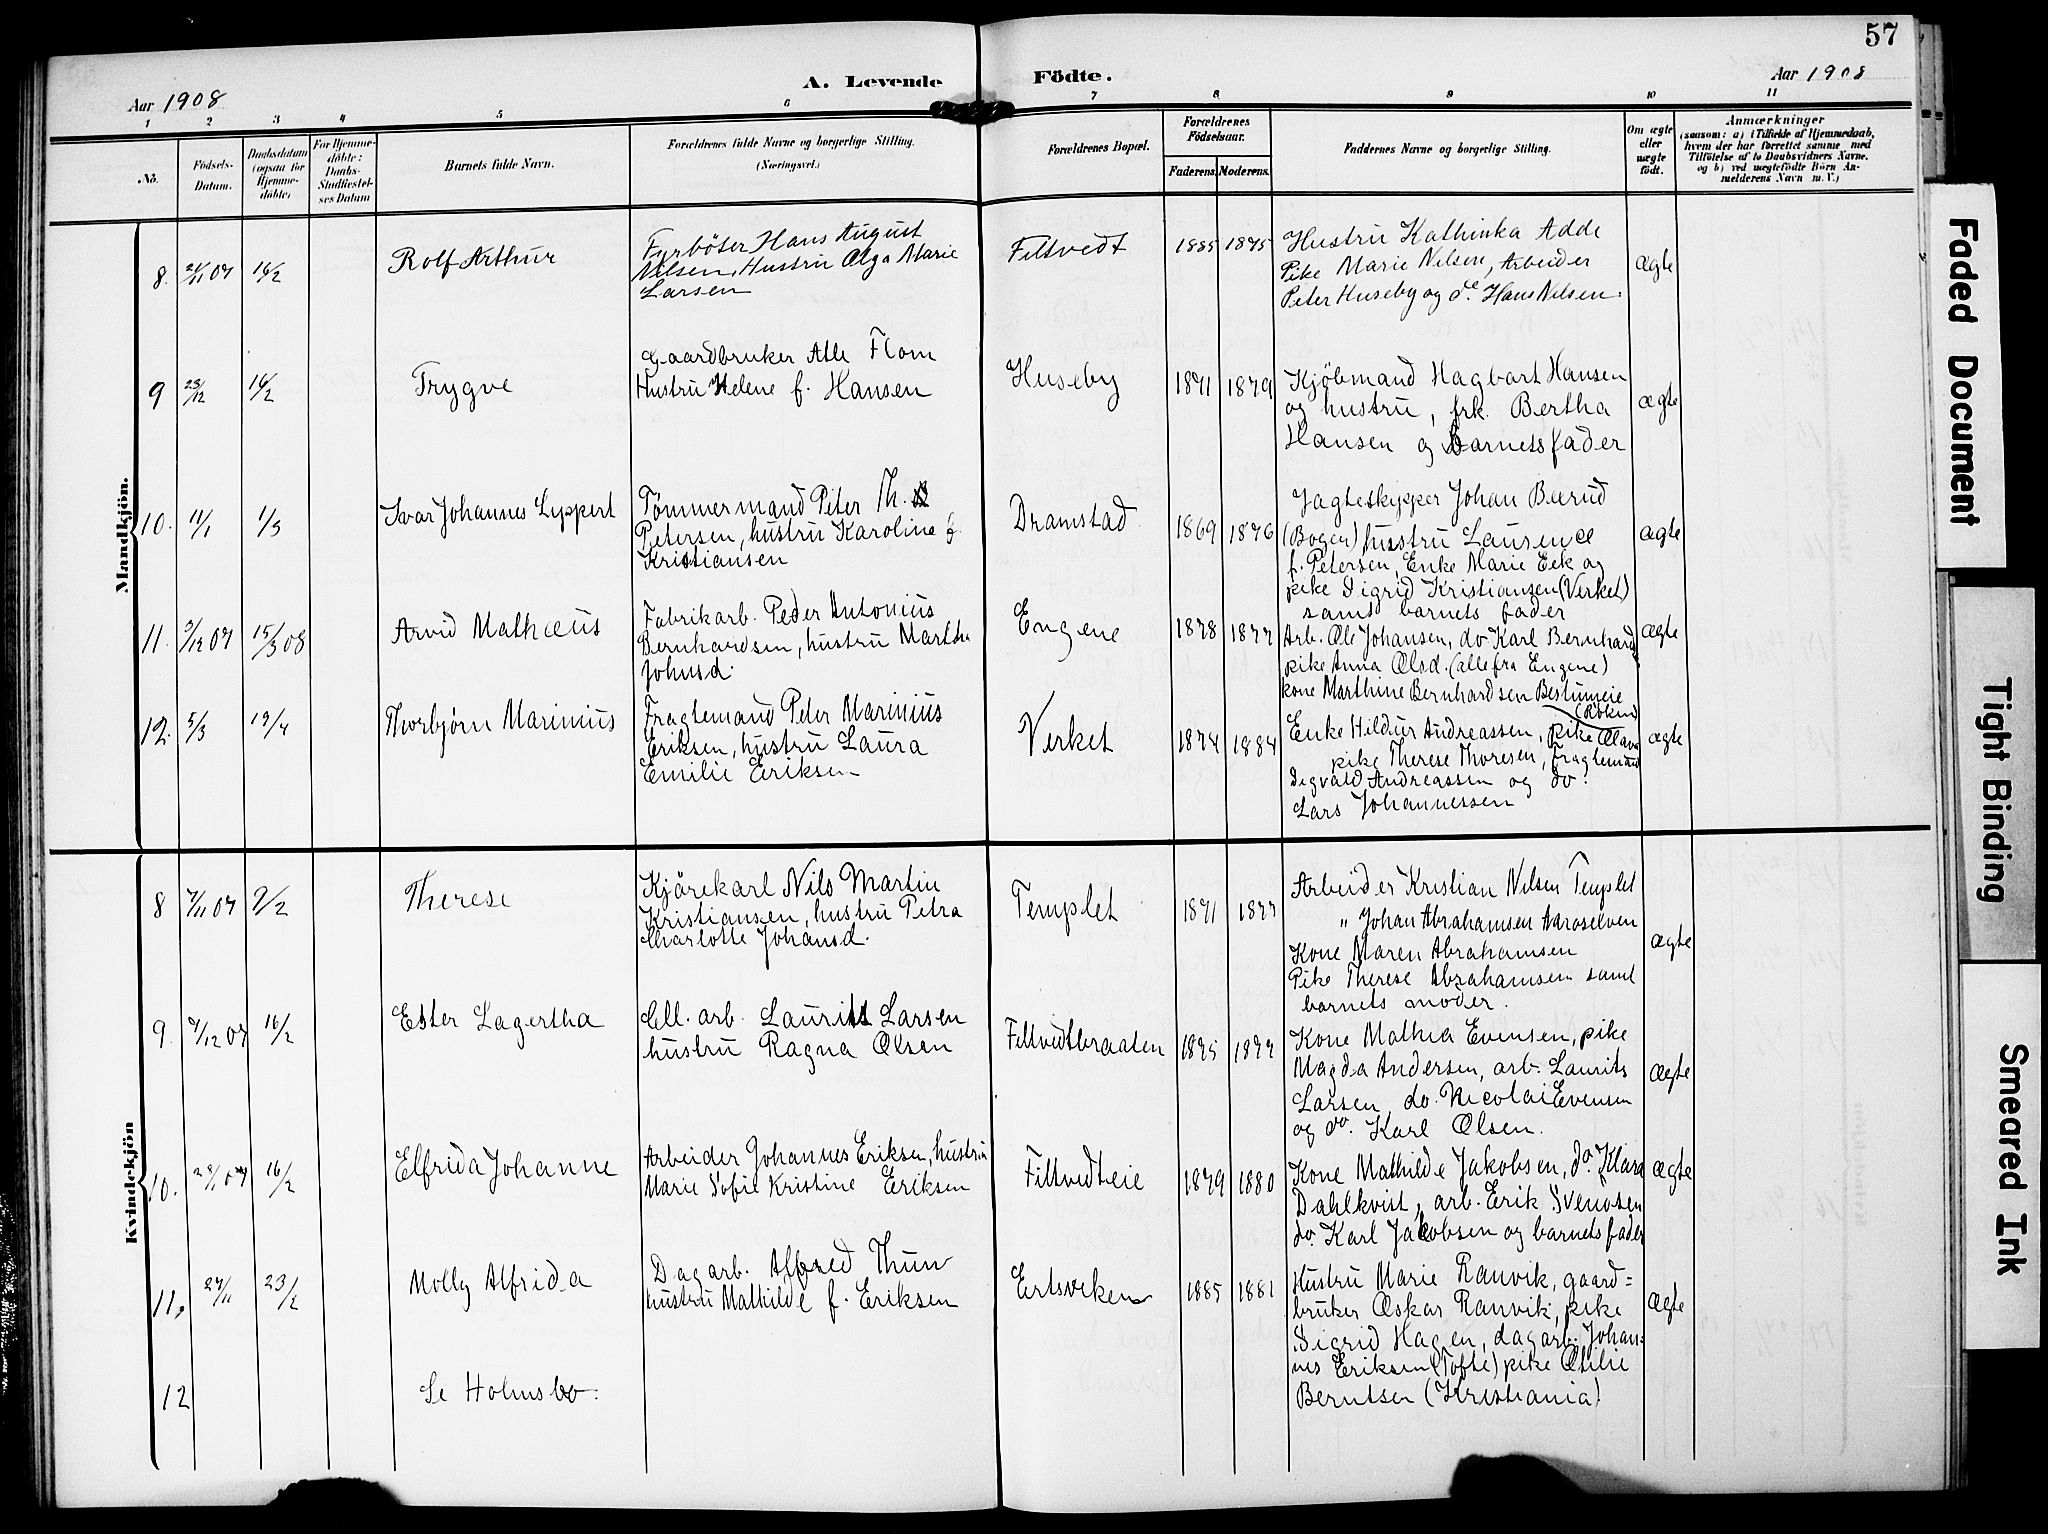 57
A. Levende Födte.
Aar 1908
Aar 1908
1 2 3 4 5 6 7 8 9 10 11
No.
Födsels-Datum.
Daabsdatum (ogsaa for Hjemme-döbte)
For Hjemme-döbte: Daabs-Stadfæstel-ses Datum
Barnets fulde Navn.
Forældrenes fulde Navne og borgerlige Stilling.
(Næringsvei.)
Forældrenes Bopæl.
Forældrenes Födselsaar.
Faderens. Moderens.
Faddernes Navne og borgerlige Stilling.
Om ægte eller uægte födt.
Anmærkninger
(saasom: a) i Tilfælde af Hjemmedaab, hvem der har forrettet samme med Tilföielse af to Daabsvidners Navne. og b) ved uægtefödte Börn An-melderens Navn m. V.)
Mandkjön.
8. 2/1 07 16/2
Rolf Arthur
Fyrböter Hans August
Nilsen, Hustru Olga Marie
Larsen
Filtvedt
1885 1875
Hustru Kathinka Adde
Pike Marie Nilsen, Arbeider
Peter Huseby og do Hans Nilsen.
ægte
9 23/12 16/2
Trygve
Gaardbruker Atle Flom
Hustru Helene f. Hansen
Huseby
1871 1879
Kjöbmand Hagbart Hansen
og hustru, frk. Bertha
Hansen og barnets fader
ægte
10. 11/1 1/3
Ivar Johannes Lyppert
Tømmermand Peter Th.
Petersen, hustru Karoline f.
Kristiansen
Dramstad
1869 1876
Jagteskipper Johan Bærud
(Bogen) hustru Laurence
f. Petersen, Enke Marie Eek og
pike Sigrid Kristiansen (Virket)
samt barnets fader
ægte
11. 3/12 07 15/3 08
Arvid Mathæus
Fabrikarb. Peder Antonius
Bernhardsen, hustru Marthe
Johnsd.
Engene
1878 1877
Arb. Ole Johansen, do Karl Bernhards
pike Anna Olsd. (alle fra Engene)
kone Marthine Bernhardsen Bestumeie
(Röken)
ægte
12. 5/3 19/4
Thorbjørn Marinius
Fragtemand Peter Marinius
Eriksen, hustru Laura
Emilie Eriksen
Virket
1874 1884
Enke Hildur Andreassen, pike Olava
pike Therese Thoresen, Fragtemand
Segvald Andreassen og do
Lars Johannessen
ægte
Kvindekjön
8 7/11 07 9/2
Therese
Kjörekarl Nils Martin
Kristiansen, hustru Petra
Charlotte Johansd.
Templet
1871 1877
Arbeider Kristian Nilsen Templet
" Johan Abrahamsen Aaroselven
Kone Maren Abrahamsen
Pike Therese Abrahamsen samt
barnets moder.
ægte
9. 9/12 07 16/2
Ester Lagertha
Cell. arb. Laurits Larsen
hustru Ragna Olsen
Filtvedtbraaten
1875 1877
Kone Mathea Evensen, pike
Magda Andersen, arb. Laurits
Larsen, do. Nicolai Evensen
og do. Karl Olsen.
ægte
10. 16/2
Elfrida Johanne
Arbeider Johannes Eriksen, hustru
Marie Sofie Kristine Eriksen
Filtvedteie
1879 1880
Kone Mathilde Jakobsen, do. Klara
Dahlkvist, arb. Erik Svendsen
do. Karl Jakobsen og barnets fader
ægte
11. 27/11 23/2
Molly Alfrida
Dagarb. Alfred Thun
hustru Mathilde f. Eriksen
Ertsviken
1885 1881
Hustru Marie Ranvik, gaard=
bruker Oskar Ranvik, pike
Sigrid Hagen, dagarb. Johan-
nes Eriksen (Tofte) pike Otilie
Berntsen (Kristiania)
ægte
12
Se Holmsbo.
Faded Document
Tight Binding
Smeared Ink